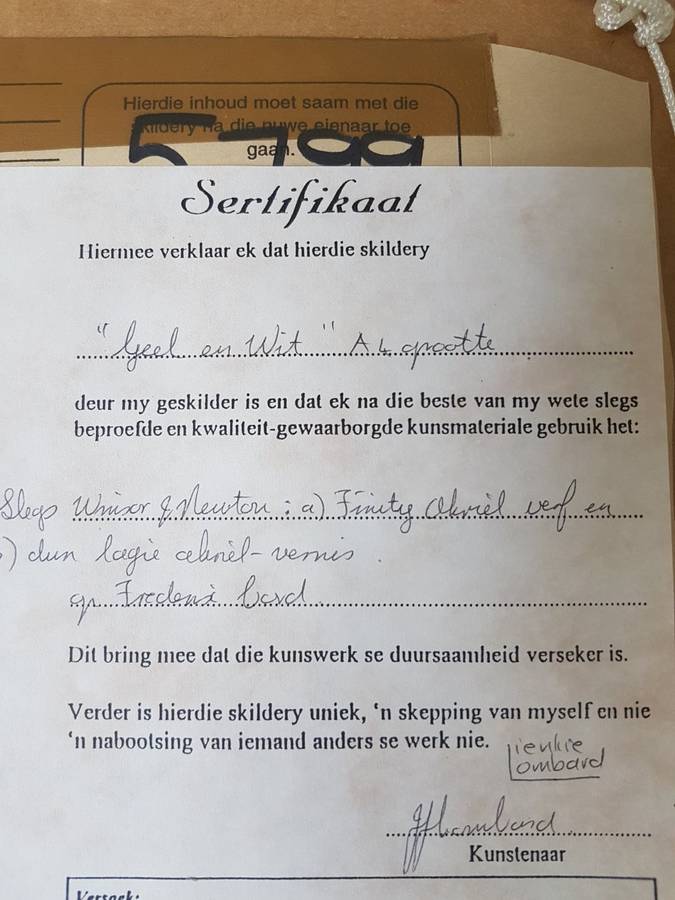 Hierdie inhoud moet saam met die
skildery na die nuwe eienaar toe
gaan.
5799
Sertifikaat
Hiermee verklaar ek dat hierdie skildery
"Geel en Wit" A4 grootte
deur my geskilder is en dat ek na die beste van my wete slegs
beproefde en kwaliteit-gewaarborgde kunsmateriale gebruik het:
Slegs Winsor & Newton: a) Finity Akriel verf en
) dun lagie akriel-vernis.
op Frederix bord
Dit bring mee dat die kunswerk se duursaamheid verseker is.
Verder is hierdie skildery uniek, 'n skepping van myself en nie
'n nabootsing van iemand anders se werk nie.
Lienkie
Lombard
Kunstenaar
Versoek: